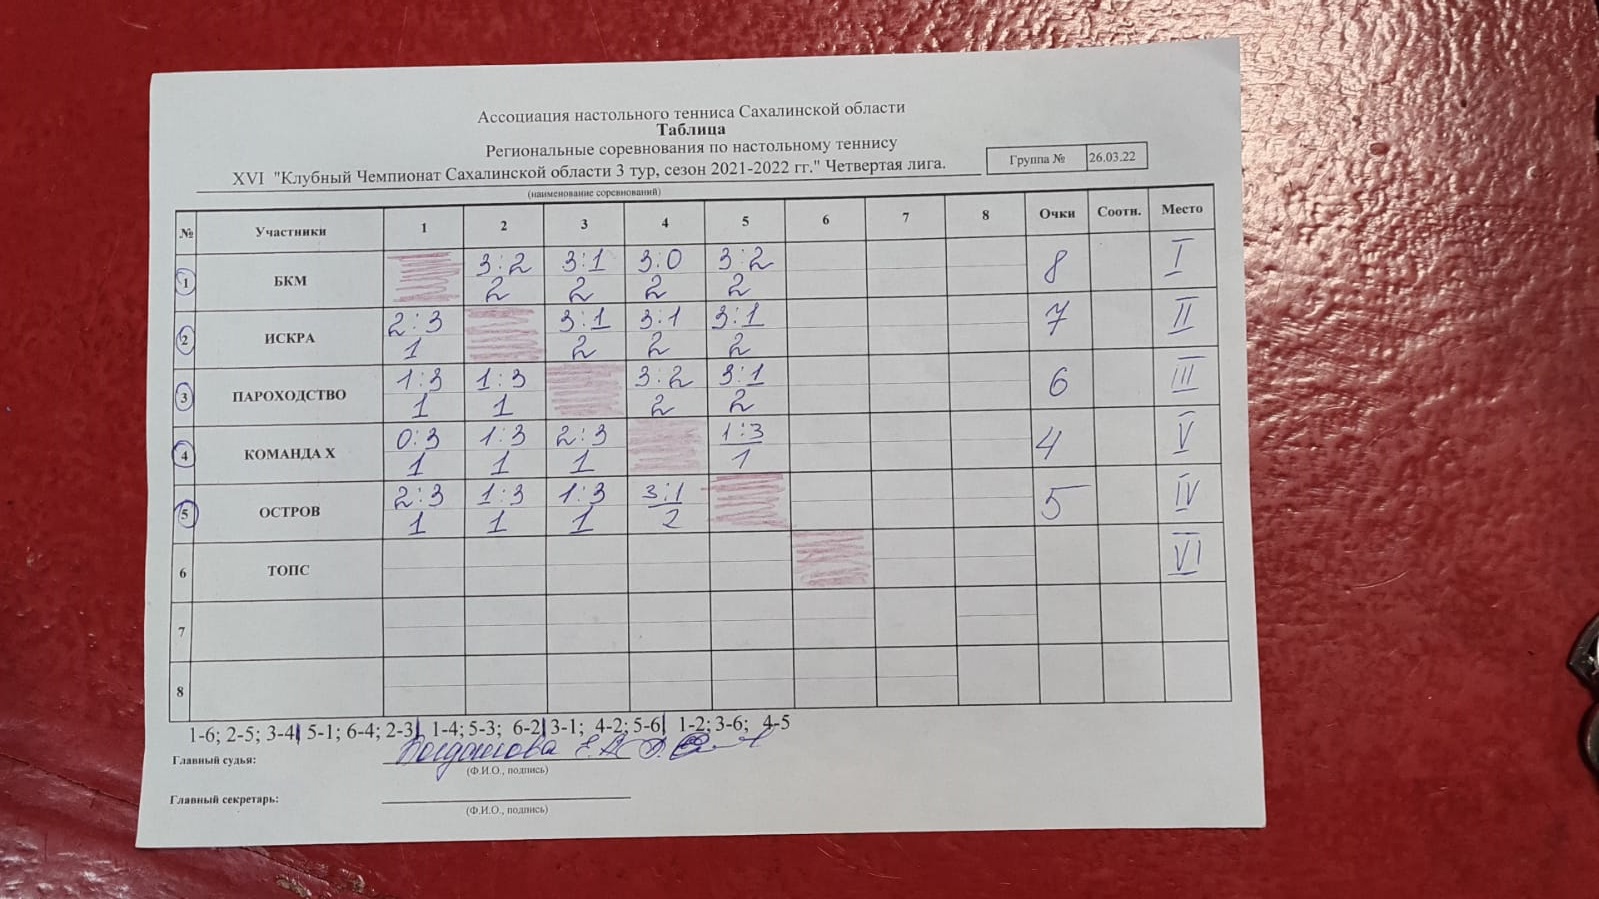 Ассоциация настольного тенниса Сахалинской области
Таблица
Региональные соревнования по настольному теннису
XVI "Клубный Чемпионат Сахалинской области 3 тур, сезон 2021-2022 гг." Четвертая лига.
Группа № 26.03.22
(наименование соревнований)
№ Участники 1 2 3 4 5 6 7 8 Очки Соотн. Место
1 БКМ 3:2 3:1 3:0 3:2 8 I
2 2 2 2
2 ИСКРА 2:3 3:1 3:1 3:1 7 II
1 2 2 2
3 ПАРОХОДСТВО 1:3 1:3 3:2 3:1 6 III
1 1 2 2
4 КОМАНДА Х 0:3 1:3 2:3 1:3 4 V
1 1 1 1
5 ОСТРОВ 2:3 1:3 1:3 3:1 5 IV
1 1 1 2
6 ТОПС VI
7
8
1-6; 2-5; 3-4| 5-1; 6-4; 2-3| 1-4; 5-3; 6-2| 3-1; 4-2; 5-6| 1-2; 3-6; 4-5
Главный судья:
(Ф.И.О., подпись)
Главный секретарь:
(Ф.И.О., подпись)